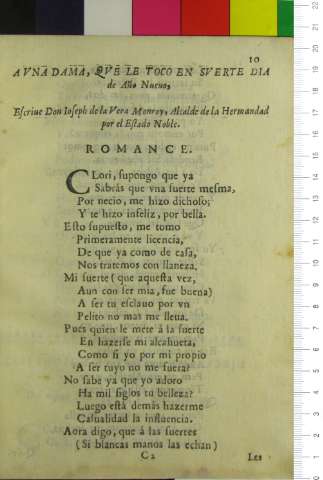 10
A VNA DAMA, QVE LE TOCO EN SVERTE DIA
de Año Nueuo,
Escriue Don Ioseph de la Vera Monroy, Alcalde de la Hermandad
por el Estado Noble.
ROMANCE.
CLori, supongo que ya
Sabràs que vna suerte mesma,
Por necio, me hizo dichoso;
Y te hizo infeliz, por bella.
Esto supuesto, me tomo
Primeramente licencia,
De que ya como de casa,
Nos tratemos con llaneza.
Mi suerte (que aquesta vez,
Aun con ser mia, fue buena)
A ser tu esclauo por vn
Pelito no mas me lleua.
Pues quien le mete à la suerte
En hazerse mi alcahueta,
Como si yo por mi propio
A ser tuyo no me fuera?
No sabe ya que yo adoro
Ha mil siglos tu belleza?
Luego està demàs hazerme
Casualidad la influencia.
Aora digo, que à las suertes
(Si blancas manos las echan)
C2
Les
22
21
20
19
18
17
16
15
14
13
12
11
10
9
8
7
6
5
4
3
2
1